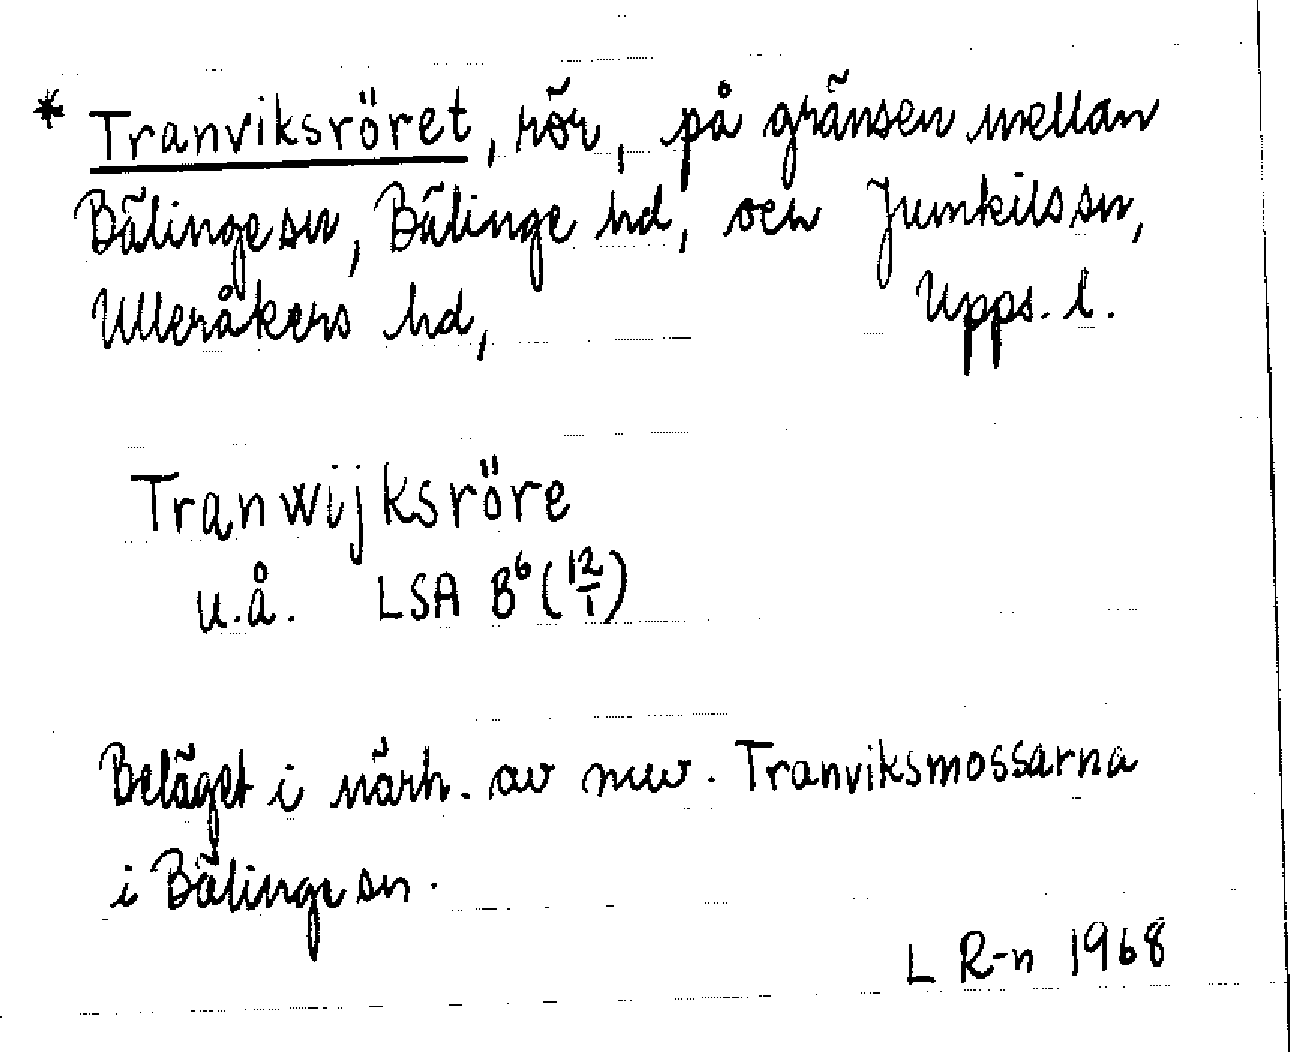 * Tranviksröret, rör, på gränsen mellan
Bälinge sn, Bälinge hd, och Jumkils sn,
Ulleråkers hd, Upps. l.
Tranwijksröre
u.å. LSA B⁶ (12/1)
Beläget i närh. av nuv. Tranviksmossarna
i Bälinge sn.
L R-n 1968